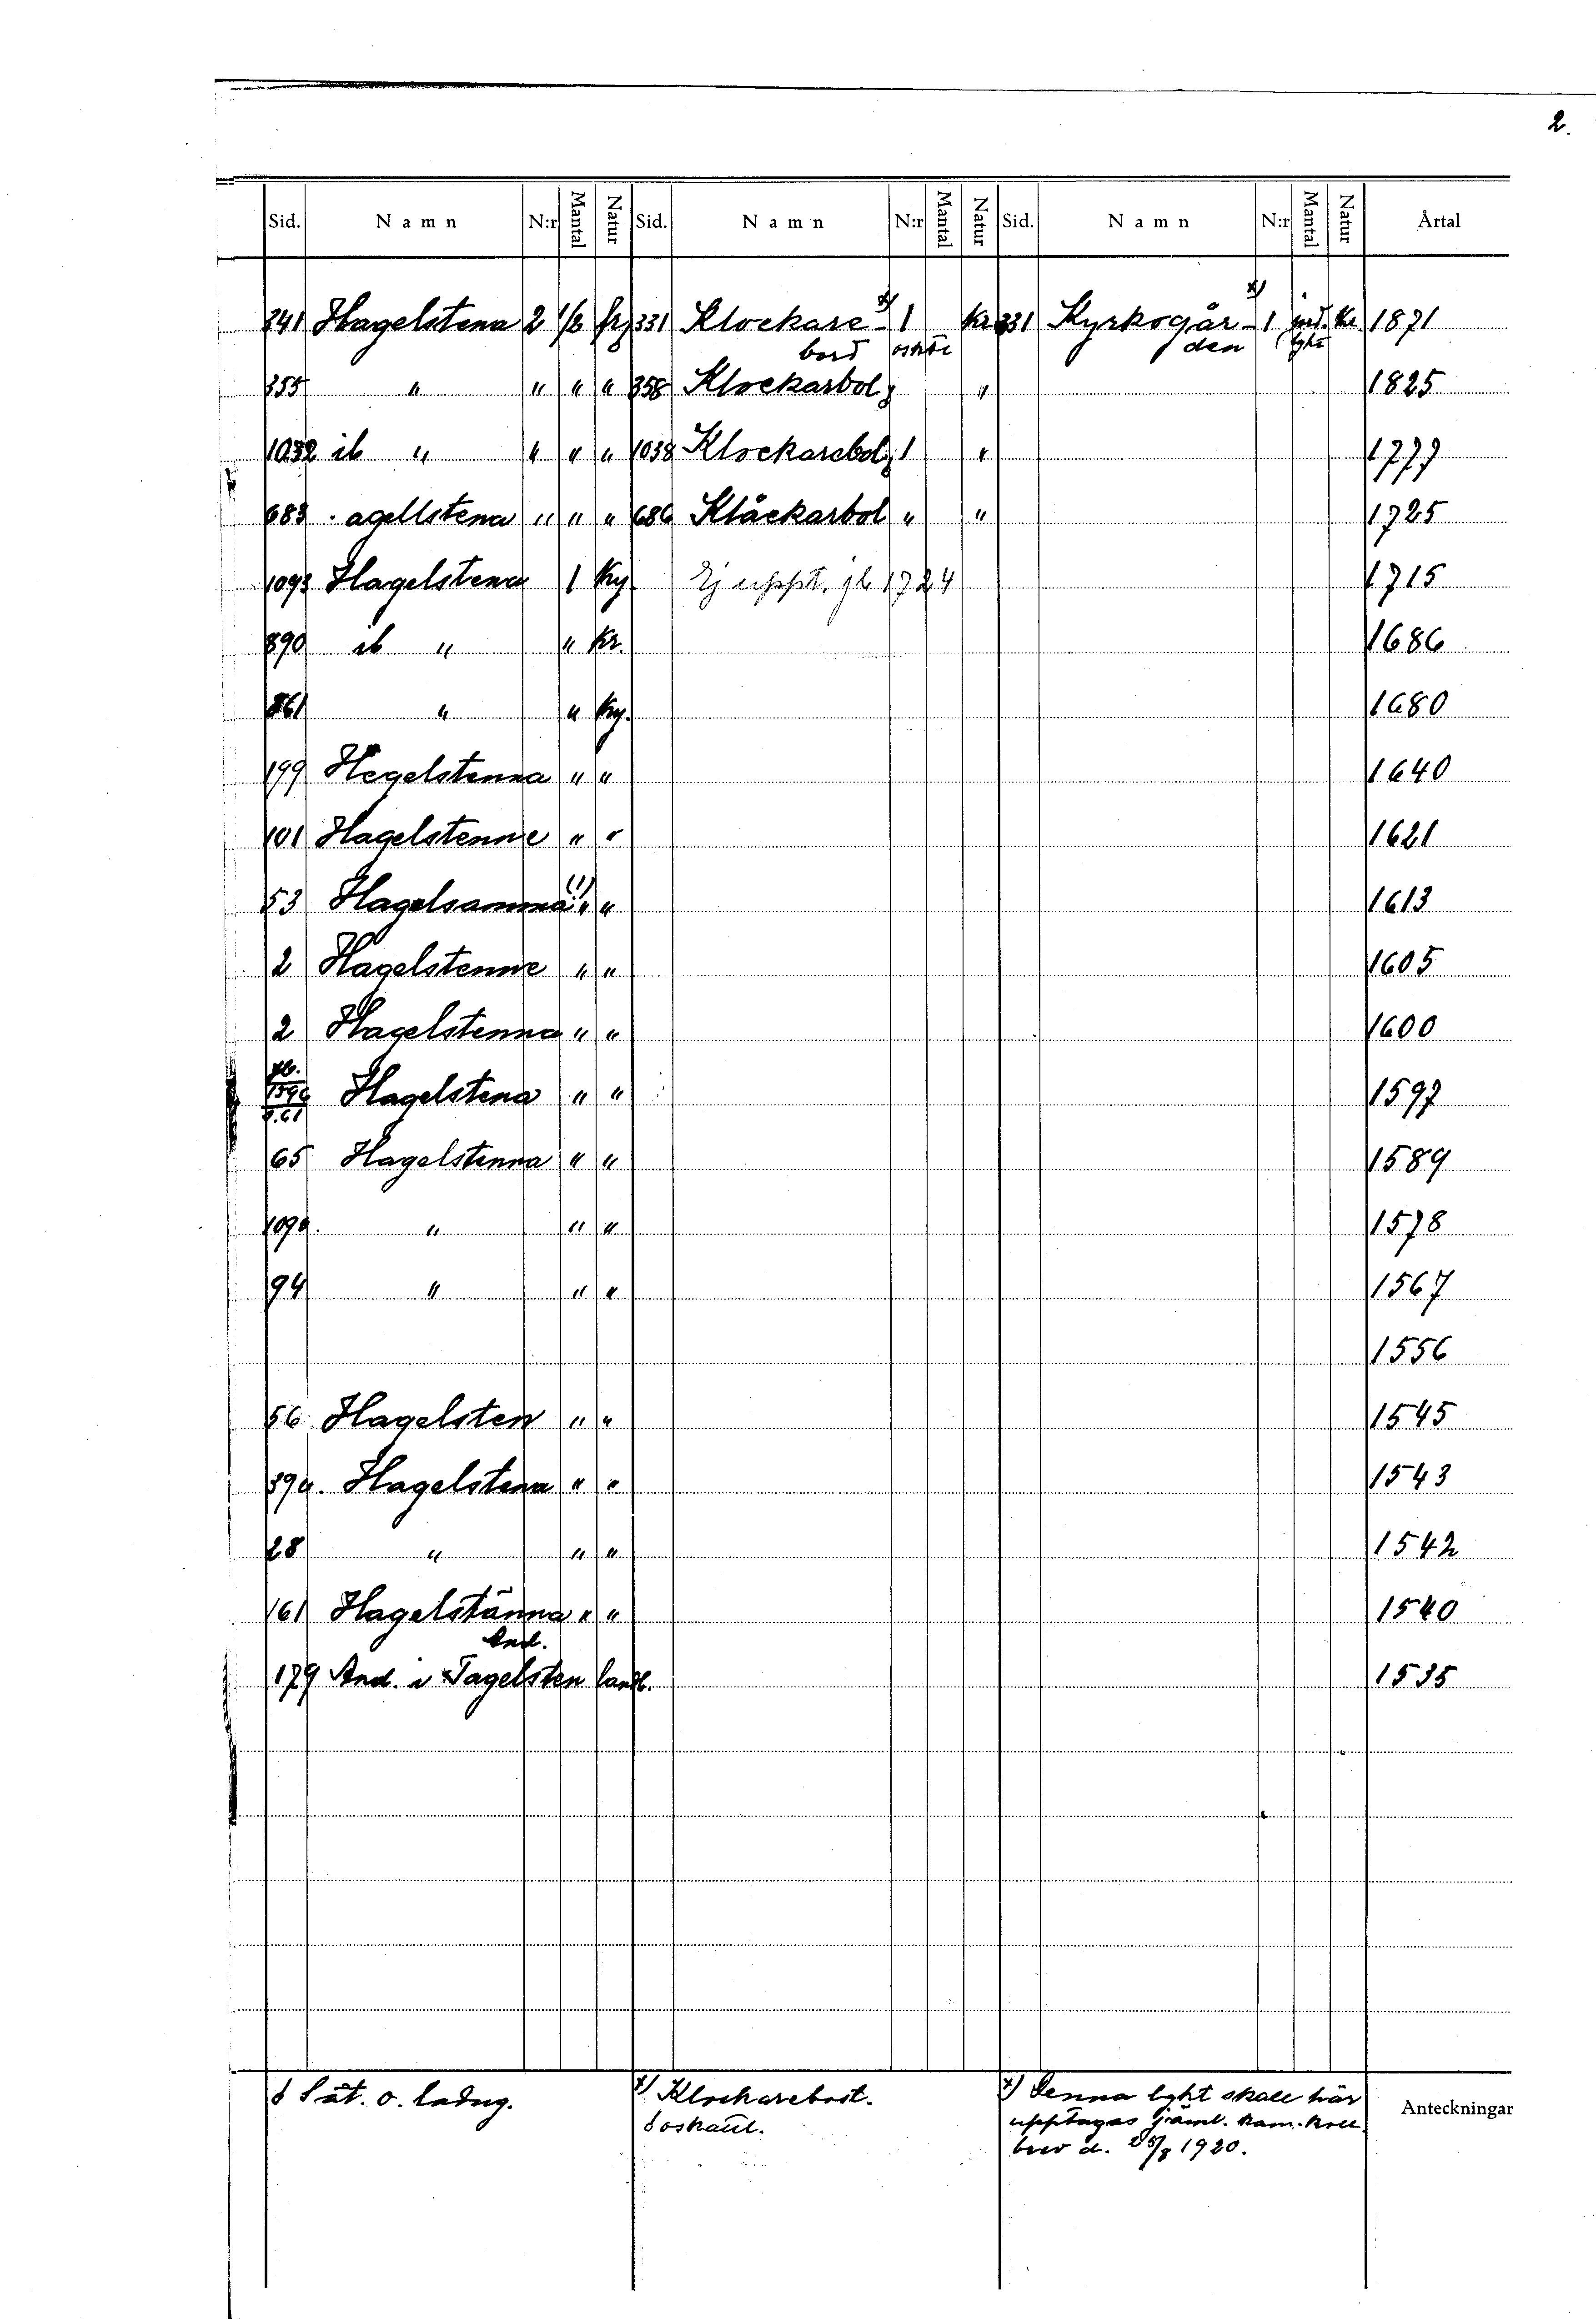 2.
Sid. Namn N:r Mantal Natur Sid. Namn N:r Mantal Natur Sid. Namn N:r Mantal Natur Årtal
341 Hagelstena 2 1/2 frz 331 Klockare- x) 1 Kr 331 Kyrkogår- x) 1 jord. Kr. 1871
bord oskatt den lght
355 " " " " 358 Klockarbol " 1825
1032 ib " " " " 1038 Klockarebol 1 " 1777
683 . agellstena " " " 686 Klåckarbol " " 1725
1093 Hagelstena 1 Ky Ej uppt. jb 1724 1715
890 ib " " Kr. 1686
861 " " Ky. 1680
199 Hegelstenna " " 1640
101 Hagelstenne " " 1621
53 Hagelsamma (!) " " 1613
2 Hagelstenne " " 1605
2 Hagelstenna " " 1600
jb.
1596 Hagelstena " " 1597
s. 61
65 Hagelstenna " " 1589
109a. " " " 1578
94 " " " 1567
1556
56. Hagelsten " " 1545
39a. Hagelstena " " 1543
28 " " " 1542
161 Hagelstänna " " 1540
And.
179 And. i Tagelsten landb. 1535
Sät. o. ladug.
x) Klockarebost.
oskattl.
x) Denna lght skall här
upptagas jäml. Kam. Koll
brev d. 25/8 1920.
Anteckningar